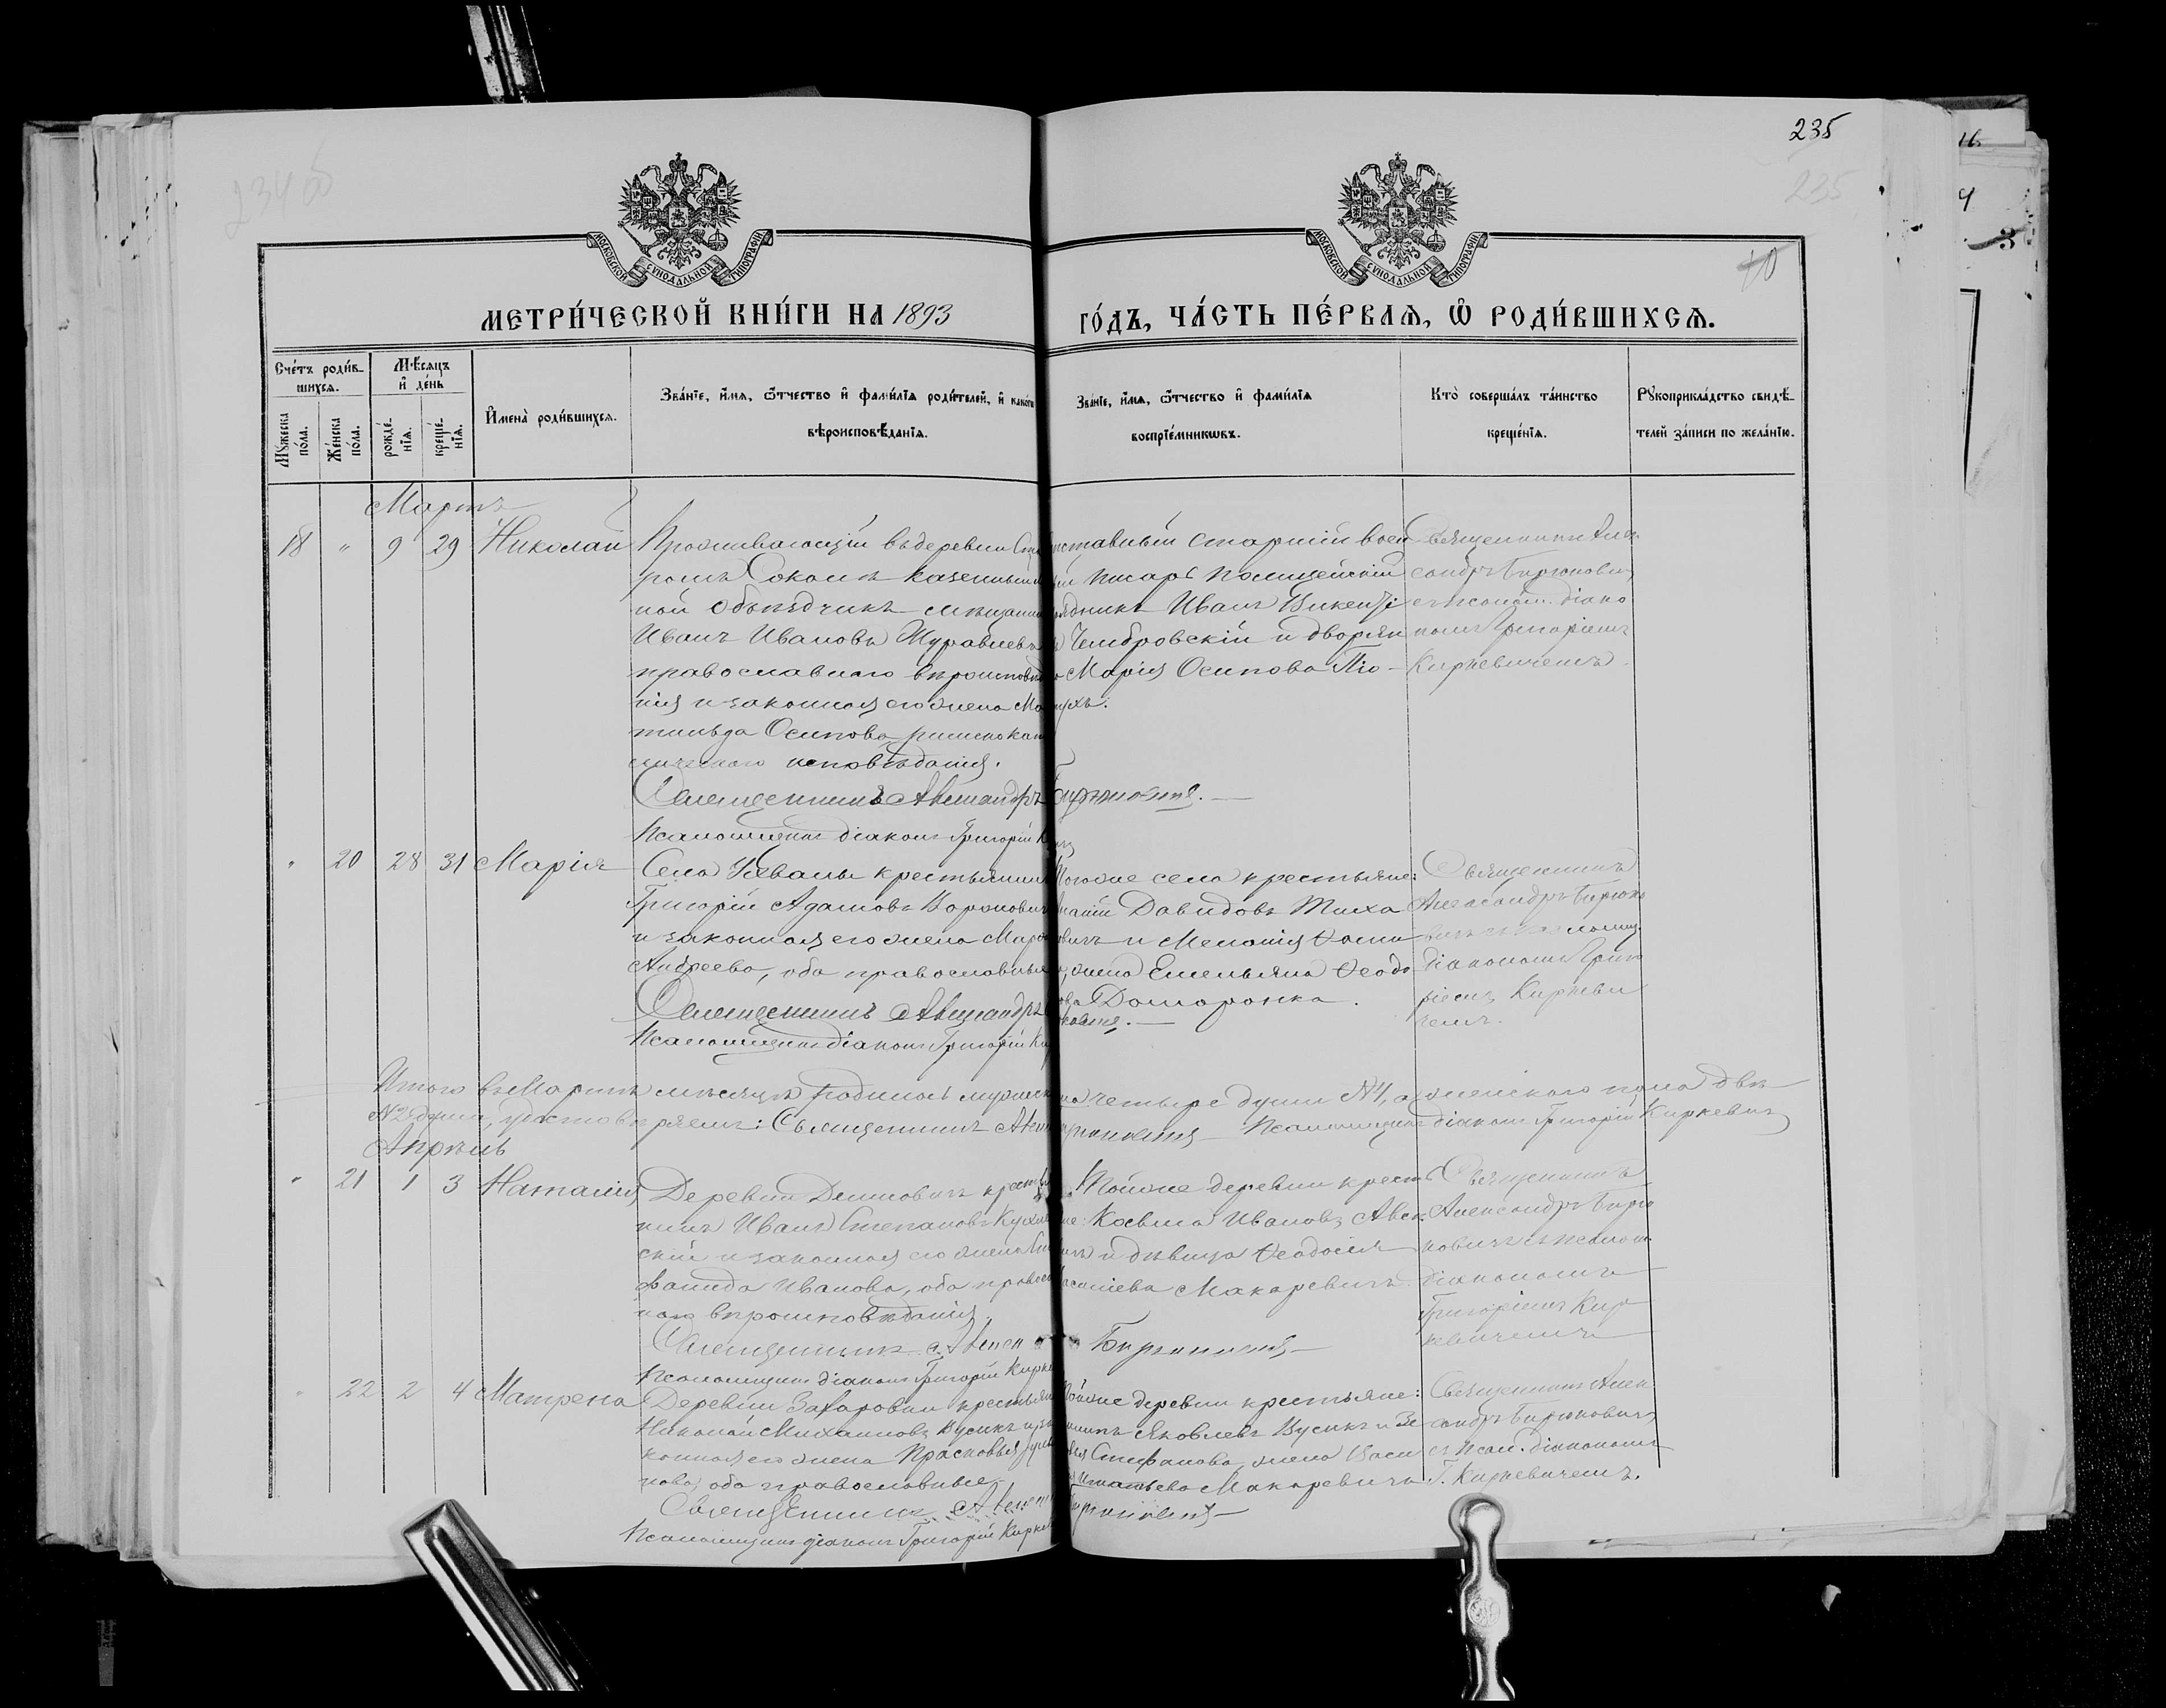 235
234об
235
40
МОСКОВСКОЙ СУНОДАЛЬНОЙ ТИПОГРАФІИ
МОСКОВСКОЙ СУНОДАЛЬНОЙ ТИПОГРАФІИ
МЕТРИ́ЧЕСКОЙ КНИ́ГИ НА 1893
ГО́ДЪ, ЧА́СТЬ ПЕ́РВАѦ, Ѿ РОДИ́ВШИХСѦ.
Сче́тъ роди́в-
шихсѧ.
Мꙋ́жеска
по́ла.
Же́нска
по́ла.
Мѣ́сѧцъ
и҆ де́нь
рожде́-
нїѧ.
креще́-
нїѧ.
И҆мена̀ роди́вшихсѧ.
Зва́нїе, и҆́мѧ, ѻ҆́тчество и҆ фами́лїѧ роди́телей, и҆ како́гѡ
вѣроисповѣ́данїѧ.
Зва́нїе, и҆́мѧ, ѻ҆́тчество и҆ фами́лїѧ
воспрїе́мникѡвъ.
Кто̀ соверша́лъ та́инство
креще́нїѧ.
Рꙋкоприкла́дство свидѣ́-
телей за́писи по жела́нїю.
Мартъ
18 " 9 29 Николай
Проживающій въ деревни Ста
ромъ Соколѣ казенный
ной объѣздчикъ мѣщанин
Иванъ Ивановъ Журавлевъ
православнаго вѣроисповѣда
нія и законная его жена Ма
тильда Осипова римскокато
лическаго исповѣданія.
Священникъ Александръ Бирюковичъ.
Псаломщикъ діаконъ Григорій
ставный старшій воен
ый писарь полицейскій
рядникъ Иванъ Викенті
Чембровскій и дворян
Марія Осипова Пію-
ухъ.
Священникъ Алек
сандръ Бирюкович
съ псаломщ. діако
номъ Григоріемъ
Киркевичемъ.
" 20 28 31 Марія
Села Ухвалы крестьянинъ
Григорій Адамовъ Воронович
и законная его жена Мар
Андреева, оба православные
Священникъ Александръ
ковичъ.
Псаломщикъ діаконъ Григорій Ки
Тогоже села крестьяне:
Давидовъ Миха
овичъ и Меланія Ѳоми
, жена Емельяна Ѳеодо
ова Доморонка.
Священникъ
Александръ Бирюко
вичъ съ псаломщ.
діакономъ Григо
ріемъ Киркеви
чемъ.
Итого въ Мартѣ мѣсяцѣ родилось мужеск
по четыре души №4, а женскаго пола двѣ
№2 души, удостовѣряемъ: Священникъ Алек
Псаломщикъ діаконъ Григорій Киркевичъ
Апрѣль
" 21 1 3 Наталія
Деревни Демковичъ крестья
нинъ Иванъ Степановъ
скій и законная его жена
Ивановa, оба правосл
наго вѣроисповѣданія.
Священникъ Алек
Бирюковичъ
Псаломщикъ діаконъ Григорій Кирке
Тойже деревни кресть
не: Косьма Ивановъ
и дѣвица Ѳеодосія
Макаревичъ.
Священникъ
Александръ Бирю
ковичъ съ псалом.
діакономъ
Григоріемъ Кир
кевичемъ
" 22 2 4 Матрена
Деревни Захаровки крестьяни
Николай Михаиловъ Бусикъ и за
конная его жена Прасковья
нова, оба православные
Священникъ Алек
Псаломщикъ діаконъ Григорій Кирке
тойже деревни крестьяне:
Яковлевъ Бусикъ и
Стефанова, жена Васи
Игнатьева Макаревича
Священникъ Алек
сандръ Бирюковичъ
съ псал. діакономъ
Г. Киркевичемъ.